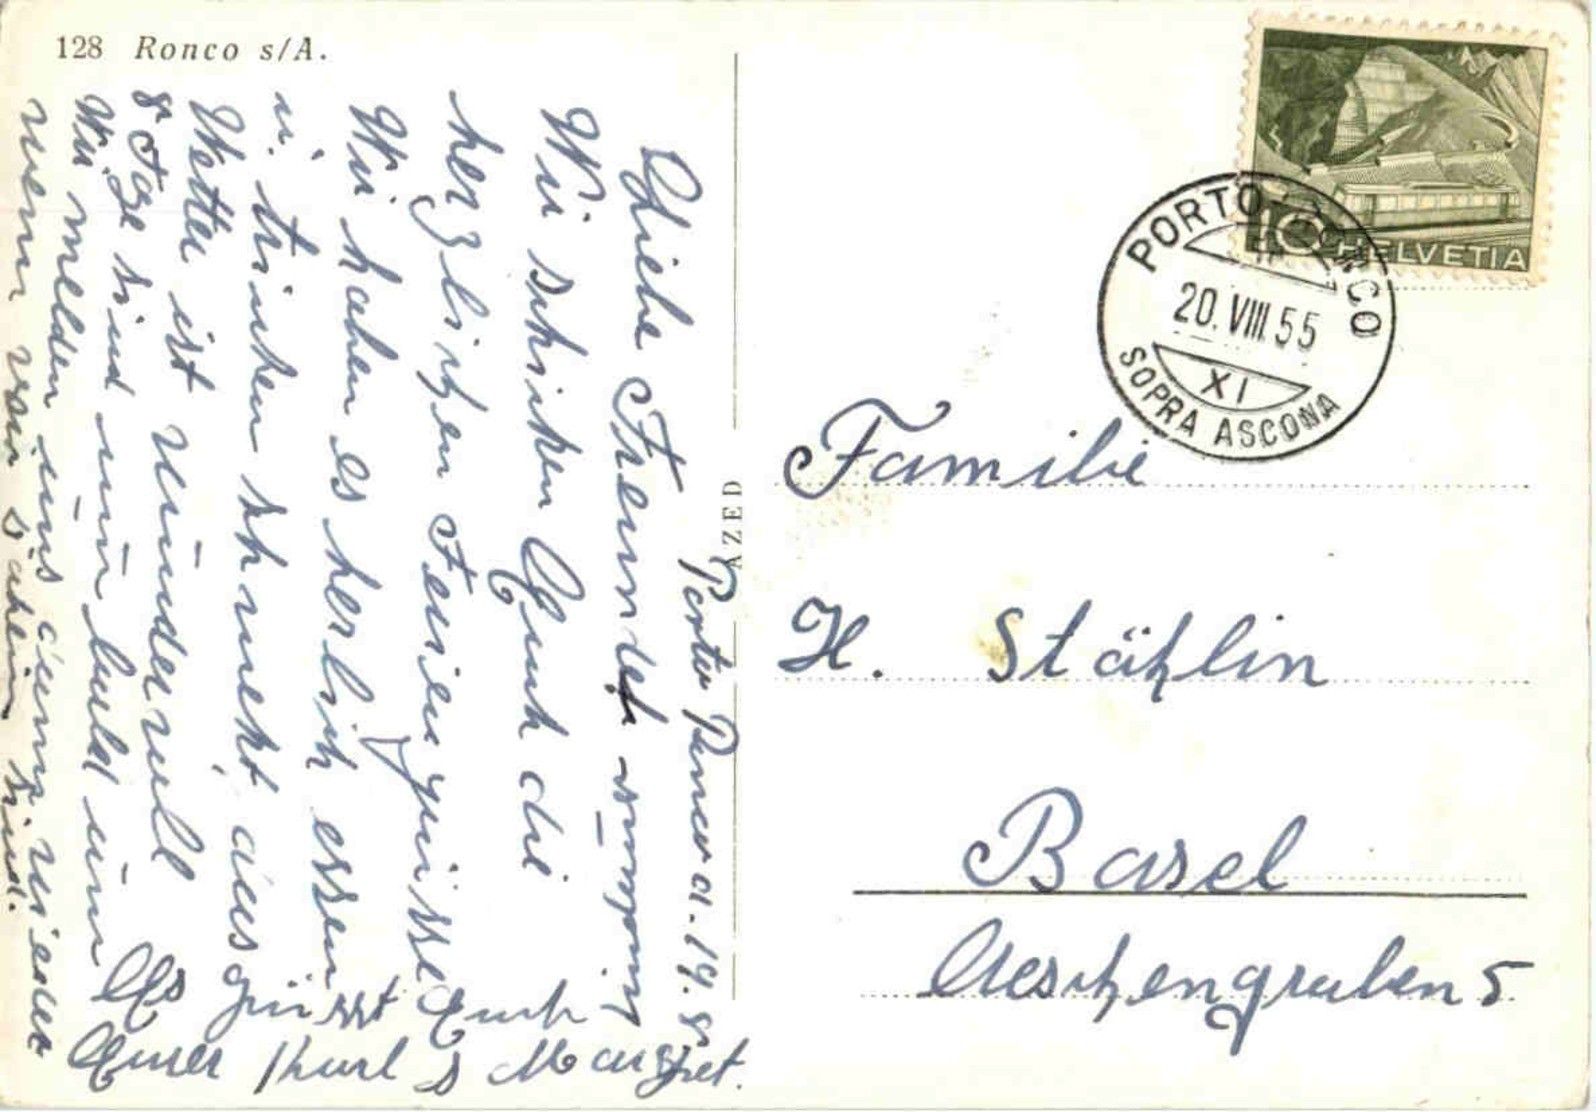 128 Ronco s/A.
Porto Ronco a. 19. 8.
Liebe Freunde
Wir schicken Euch die
herzlichen Feriengrüsse
Wir haben es herlich essen
u. trinken schmekt aus
Wetter ist wundervoll
8 Tage sind nun bald um
Wir melden uns dann wieder
wenn wir daheim sind.
Es grüsst Euch
Euer Karl & Margret.
AZED
HELVETIA
10
PORTO RONCO
20.VIII.55
XI
SOPRA ASCONA
Familie
H. Stählin
Basel
Aeschengraben 5